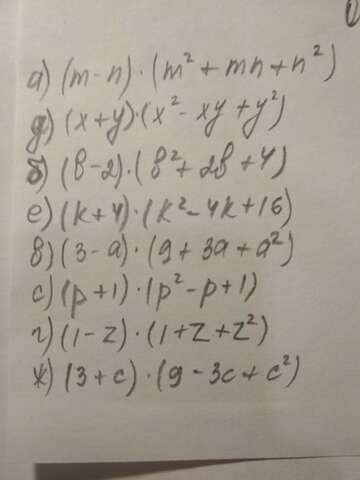 а) (m-n)·(m²+mn+n²)
д) (x+y)·(x²-xy+y²)
б) (b-2)·(b²+2b+4)
е) (k+4)·(k²-4k+16)
в) (3-a)·(9+3a+a²)
с) (p+1)·(p²-p+1)
г) (1-z)·(1+z+z²)
ж) (3+c)·(9-3c+c²)